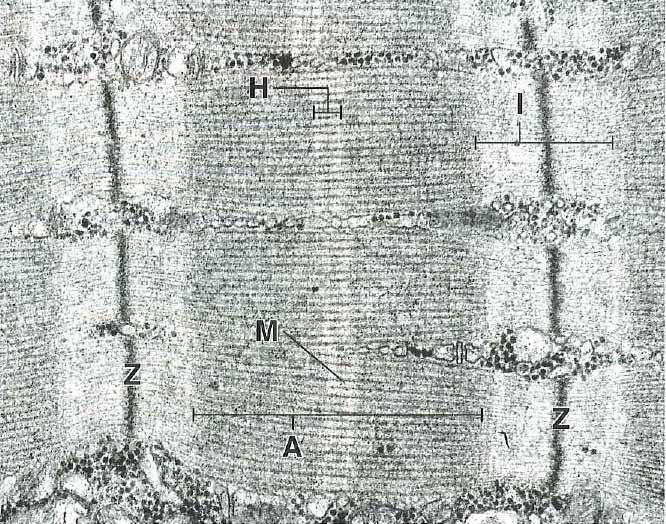 H
I
M
Z
A
Z